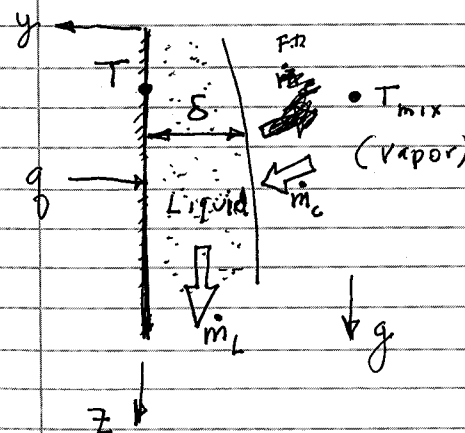 y
T
δ
T mix
(vapor)
q
Liquid
ṁc
ṁL
g
z